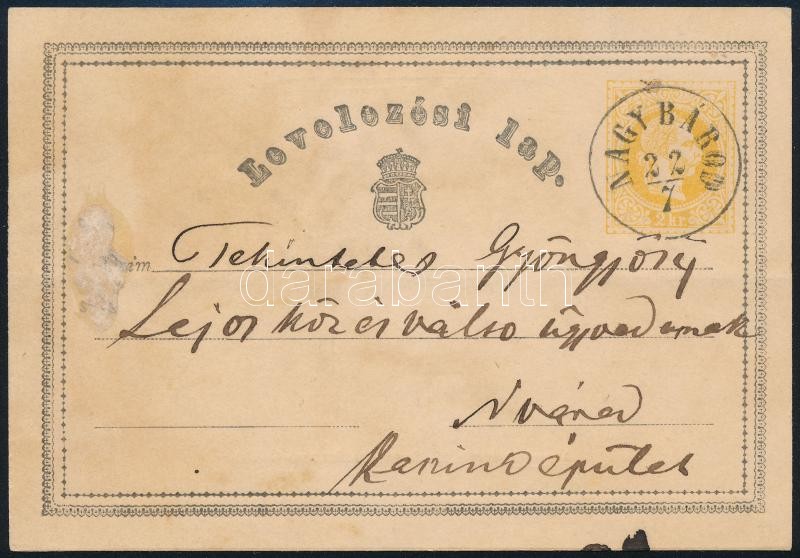 Levelezési lap.
NAGY BÁROD
22
7
2 kr.
Tekintetes Gyöngyösy
Lajos köz és váltó ügyvéd urnak
N várad
Kaszinó épület
darabanth